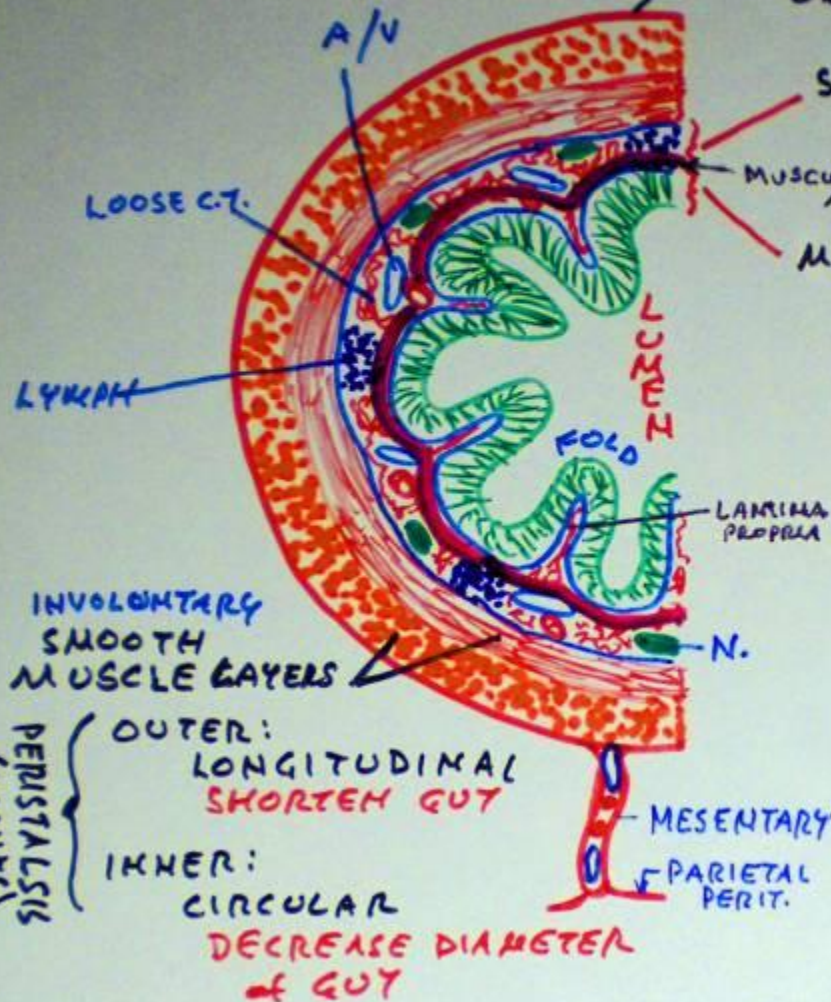 A/V
LOOSE C.T.
LYMPH
S
MUSCU
M
LUMEN
FOLD
LAMINA
PROPRIA
N.
INVOLUNTARY
SMOOTH
MUSCLE LAYERS
PERISTALSIS
OUTER:
LONGITUDINAL
SHORTEN GUT
INNER:
CIRCULAR
DECREASE DIAMETER
of GUT
MESENTARY
PARIETAL
PERIT.